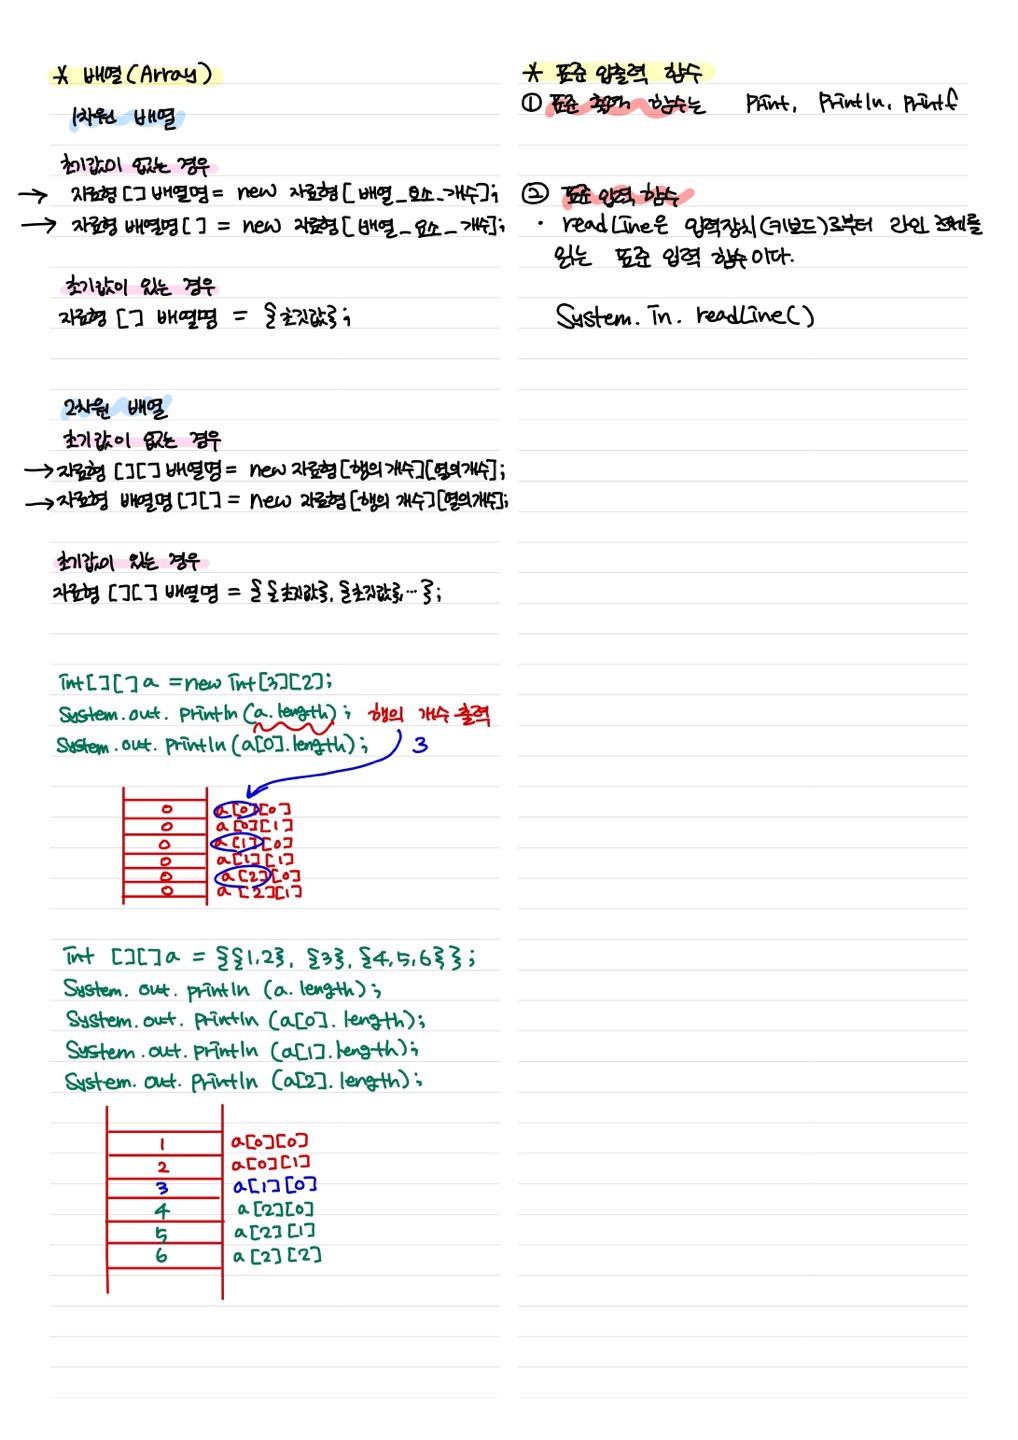 * 배열(Array)
1차원 배열
초기값이 없는 경우
→ 자료형[] 배열명 = new 자료형[배열_요소_개수];
→ 자료형 배열명[] = new 자료형[배열_요소_개수];
초기값이 있는 경우
자료형[] 배열명 = {초깃값};
2차원 배열
초기값이 없는 경우
→ 자료형[][] 배열명 = new 자료형[행의 개수][열의개수];
→ 자료형 배열명[][] = new 자료형[행의 개수][열의개수];
초기값이 있는 경우
자료형[][] 배열명 = {{초깃값}, {초깃값}, …};
int[][] a = new int[3][2];
System.out.println(a.length); 행의 개수 출력
System.out.println(a[0].length); 3
0 a[0][0]
0 a[0][1]
0 a[1][0]
0 a[1][1]
0 a[2][0]
0 a[2][1]
int [][] a = {{1,2}, {3}, {4,5,6}};
System.out.println(a.length);
System.out.println(a[0].length);
System.out.println(a[1].length);
System.out.println(a[2].length);
1 a[0][0]
2 a[0][1]
3 a[1][0]
4 a[2][0]
5 a[2][1]
6 a[2][2]
* 표준 입출력 함수
① 표준 출력 함수는 print, println, printf
② 표준 입력 함수
· readLine은 입력장치(키보드)로부터 라인 전체를
읽는 표준 입력 함수이다.
System.in.readLine()